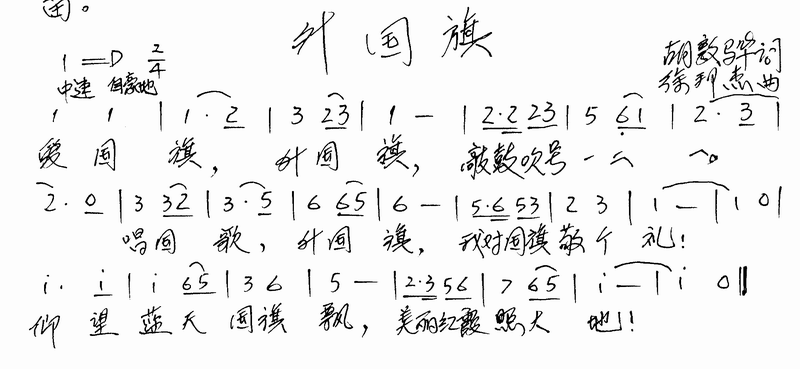 面。
升国旗
1=D 2/4
中速 自豪地
胡敦骅词
徐邦杰曲
1 1 | 1·2 | 3 23 | 1 — | 2·2 23 | 5 61 | 2·3 |
爱国旗，升国旗，敲鼓吹号一二一。
2·0 | 3 32 | 3·5 | 6 65 | 6 — | 5·6 53 | 2 3 | 1 — | 1 0 |
唱国歌，升国旗，我对国旗敬个礼！
i· i | i 65 | 3 6 | 5 — | 2·3 56 | 7 65 | i — | i 0 ‖
仰望蓝天国旗飘，美丽红霞照大地！